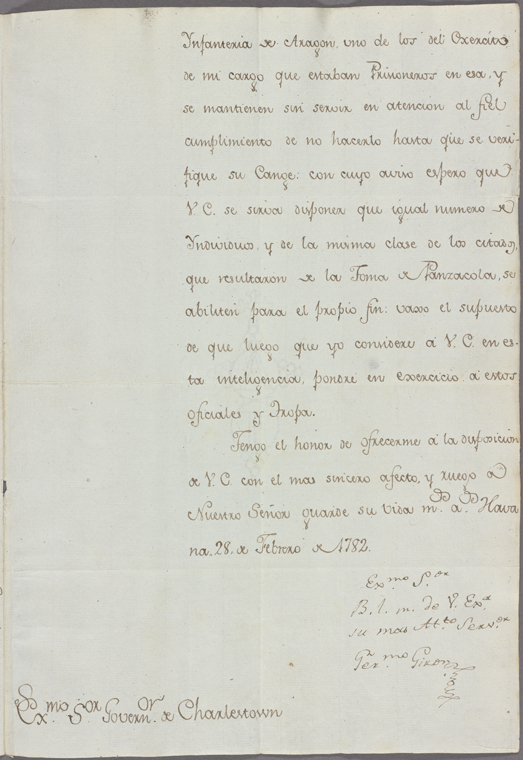 Infanteria de Aragon, uno de los del Exercito
de mi cargo que estaban Prisioneros en esa, y
se mantienen sin servir en atencion al fiel
cumplimiento de no hacerlo hasta que se veri-
fique su Cange: con cuyo aviso espero que
V.E. se sirva disponer que igual numero de
Individuos, y de la misma clase de los citados,
que resultaron de la Toma de Panzacola, se
abiliten para el propio fin: vaxo el supuesto
de que luego que yo considere á V.E. en es-
ta inteligencia, pondré en exercicio á estos
oficiales y Tropa.
Tengo el honor de ofrecerme á la disposicion
de V.E. con el mas sincero afecto, y ruego á
Nuestro Señor guarde su vida m.s a.s Hava
na, 28. de Febrero de 1782.
Ex.mo S.or
B. l. m. de V. Ex.a
su mas At.to Serv.or
Ger.mo Giron
Ex.mo S.or Govern.or de Charlestown